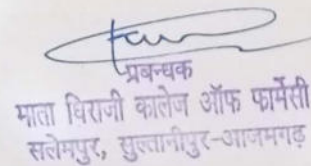 प्रबन्धक
माता विराजी कालेज ऑफ फार्मेसी
सलेमपुर, सुल्तानीपुर-आजमगढ़